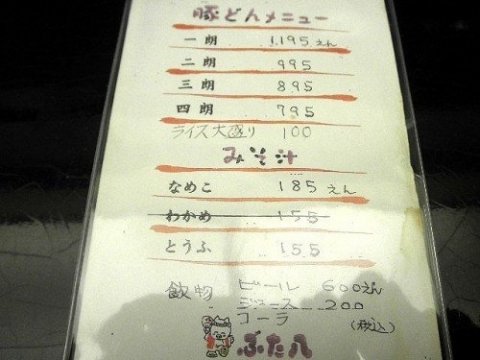 豚どんメニュー
一朗 1,195えん
二朗 995
三朗 895
四朗 795
ライス大盛り 100
みそ汁
なめこ 185えん
わかめ 155
とうふ 155
飲物 ビール 600えん
ジュース 200
コーラ (税込)
ぶた八